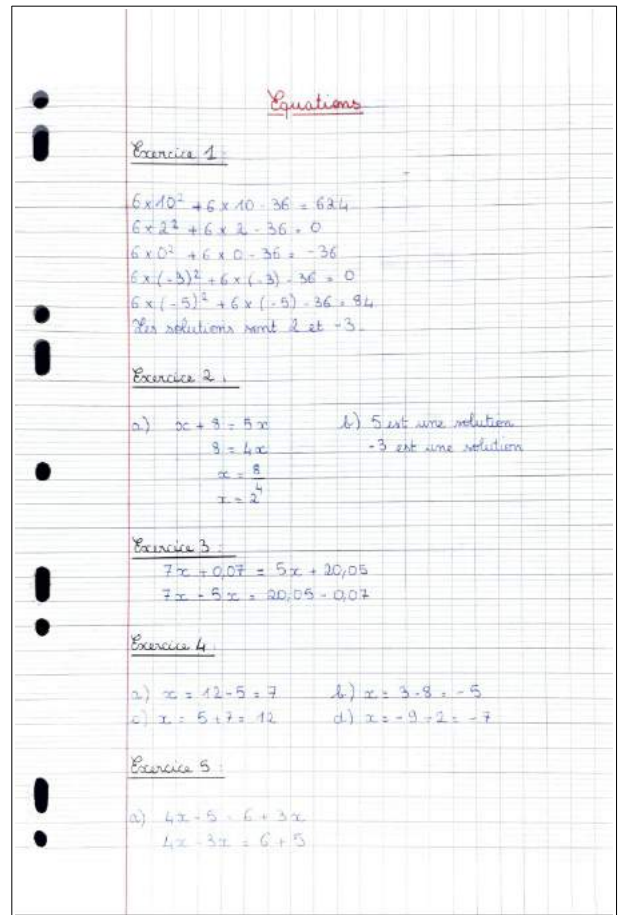 Equations
Exercice 1 :
6 x 10² + 6 x 10 - 36 = 624
6 x 2² + 6 x 2 - 36 = 0
6 x 0² + 6 x 0 - 36 = -36
6 x (-3)² + 6 x (-3) - 36 = 0
6 x (-5)² + 6 x (-5) - 36 = 84
Les solutions sont 2 et -3.
Exercice 2 :
a) x + 8 = 5x b) 5 est une solution
8 = 4x -3 est une solution
x = 8/4
x = 2
Exercice 3 :
7x + 0,07 = 5x + 20,05
7x - 5x = 20,05 - 0,07
Exercice 4 :
a) x = 12 - 5 = 7 b) x = 3 - 8 = -5
c) x = 5 + 7 = 12 d) x = -9 + 2 = -7
Exercice 5 :
a) 4x - 5 = 6 + 3x
4x - 3x = 6 + 5